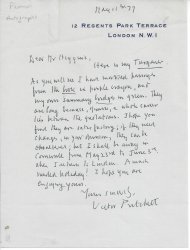 Pierson
Autographs
May 11 79
12 REGENTS PARK TERRACE
LONDON N.W.1
Dear Mr Higgins,
Here is my Turgenev
As you will see I have marked passages
from the book in purple crayon, and
my own summary bridges in green. They
are long because, I guess, a whole career
lies between the quotations. I hope you
find they are satisfactory; if they need
change, in your opinion, they can be
shortened, but I shall be away in
Cornwall from May 23rd to June 3rd.
The return to London. A much
needed holiday! I hope you are
enjoying yours.
Yours sincerely,
Victor Pritchett